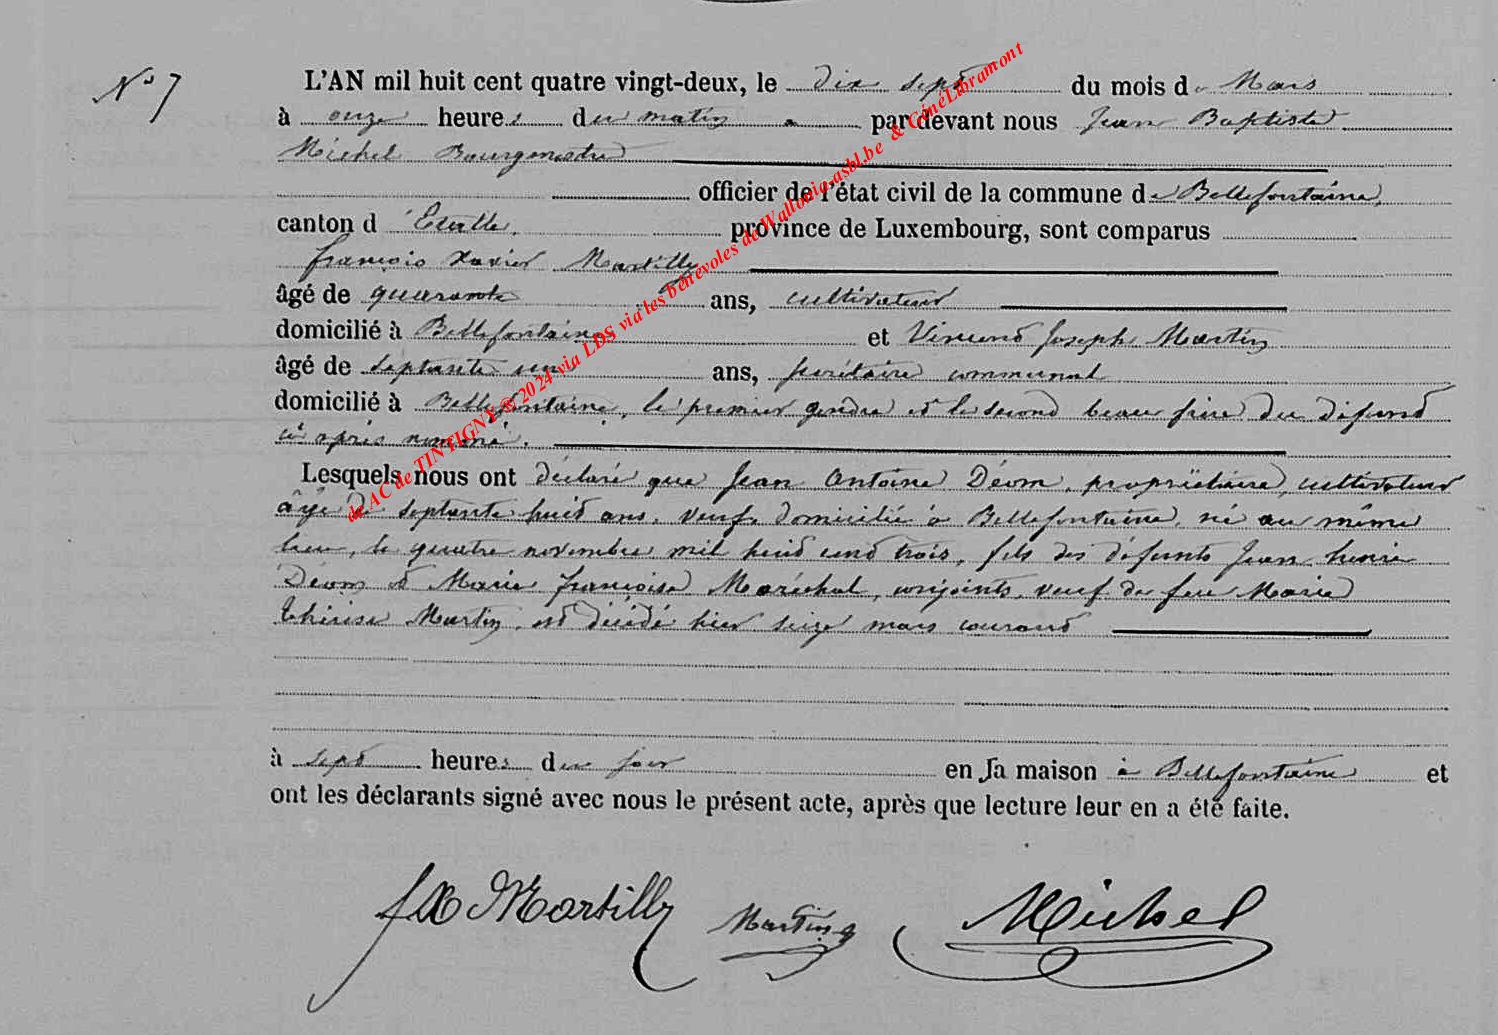 N° 7
L'AN mil huit cent quatre vingt-deux, le dix sept du mois de Mars
à onze heures du matin par devant nous Jean Baptiste
Michel Bourgmestre
officier de l'état civil de la commune de Bellefontaine,
canton d'Etalle, province de Luxembourg, sont comparus
françois Xavier Martilly
âgé de quarante ans, cultivateur
domicilié à Bellefontaine et Vincend Joseph Martin
âgé de septante un ans, secrétaire communal
domicilié à Bellefontaine, le premier gendre et le second beau frère du défund
ci après nommé.
Lesquels nous ont déclaré que Jean Antoine Déom, propriétaire, cultivateur
âgé de septante huit ans, veuf, domicilié à Bellefontaine, né au même
lieu, le quatre novembre mil huit cent trois, fils des défunts Jean henri
Déom et Marie françoise Maréchal, conjoints, veuf de feue Marie
thérèse Martin, est décédé hier seize mars courant
à sept heures du soir en sa maison à Bellefontaine et
ont les déclarants signé avec nous le présent acte, après que lecture leur en a été faite.
fX Martilly Martin Michel
de AC de TINTIGNY © 2024 via LDS via les bénévoles de Wallonia-asbl.be & CinéLibramont